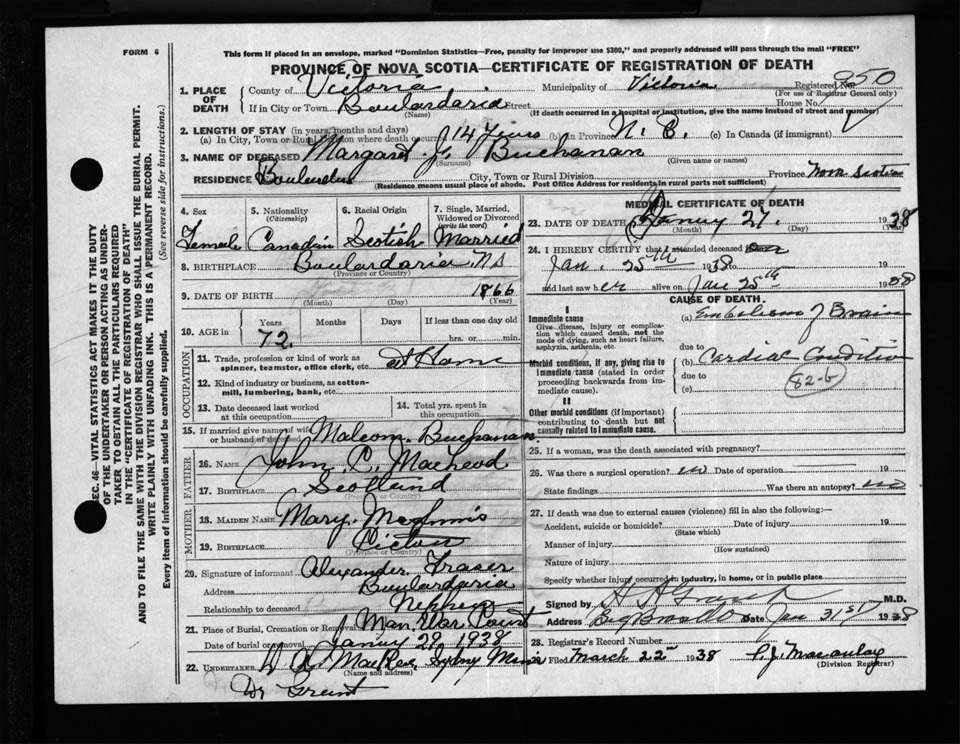 FORM 6
This form if placed in an envelope, marked "Dominion Statistics—Free, penalty for improper use $300," and properly addressed will pass through the mail "FREE"
PROVINCE OF NOVA SCOTIA—CERTIFICATE OF REGISTRATION OF DEATH
Registered No. 950
(For use of Registrar General only)
1. PLACE OF DEATH
County of Victoria Municipality of Victoria
If in City or Town Boulardarie Street House No.
(Name) (If death occurred in a hospital or institution, give the name instead of street and number)
2. LENGTH OF STAY (in years, months and days)
(a) In City, Town or Rural Division where death occurred 14 Years (b) in Province N. S. (c) In Canada (if immigrant)
3. NAME OF DECEASED Margaret J. Buchanan
(Surname) (Given name or names)
RESIDENCE City, Town or Rural Division Province Nova Scotia
(Residence means usual place of abode. Post Office Address for residents in rural parts not sufficient)
4. Sex
Female
5. Nationality
(Citizenship)
Canadian
6. Racial Origin
Scotish
7. Single, Married, Widowed or Divorced
(write the word)
Married
8. BIRTHPLACE Boulardarie, NS
(Province or Country)
9. DATE OF BIRTH 1866
(Month) (Day) (Year)
10. AGE in
Years Months Days If less than one day old
72. hrs. or min.
OCCUPATION
11. Trade, profession or kind of work as spinner, teamster, office clerk, etc. at Home
12. Kind of industry or business, as cotton-mill, lumbering, bank, etc.
13. Date deceased last worked at this occupation
14. Total yrs. spent in this occupation
15. If married give name of wife or husband of deceased Malcom Buchanan.
FATHER
16. NAME John C. MacLeod
17. BIRTHPLACE Scotland
(Province or Country)
MOTHER
18. MAIDEN NAME Mary McInnis
19. BIRTHPLACE Pictou
(Province or Country)
20. Signature of informant Alexander Fraser
Address Boulardarie
Relationship to deceased Nephew
21. Place of Burial, Cremation or Removal Man o War Point
Date of burial or removal January 29, 1938
22. UNDERTAKER Sydney Mines
(Name and address)
Dr Grant
MEDICAL CERTIFICATE OF DEATH
23. DATE OF DEATH 27. 1938
(Month) (Day) (Year)
24. I HEREBY CERTIFY that I attended deceased from
Jan. 25th 1938 to 19
and last saw her alive on Jan 25th 1938
CAUSE OF DEATH
I
Immediate cause
Give disease, injury or complication which caused death, not the mode of dying, such as heart failure, asphyxia, asthenia, etc.
(a) Embolism of Brain
due to
Morbid conditions, if any, giving rise to immediate cause (stated in order proceeding backwards from immediate cause).
(b) Cardiac Condition
due to
(c)
82-b
II
Other morbid conditions (if important) contributing to death but not causally related to immediate cause.
25. If a woman, was the death associated with pregnancy?
26. Was there a surgical operation? no Date of operation 19
State findings Was there an autopsy? no
27. If death was due to external causes (violence) fill in also the following:—
Accident, suicide or homicide? Date of injury 19
(State which)
Manner of injury
(How sustained)
Nature of injury
Specify whether injury occurred in industry, in home, or in public place
Signed by Grant M.D.
Address Date Jan 31st 1938
28. Registrar's Record Number
Filed March 22nd 1938 P.J. Macaulay
(Division Registrar)
SEC. 46—VITAL STATISTICS ACT MAKES IT THE DUTY OF THE UNDERTAKER OR PERSON ACTING AS UNDERTAKER TO OBTAIN ALL THE PARTICULARS REQUIRED IN THE "CERTIFICATE OF REGISTRATION OF DEATH" AND TO FILE THE SAME WITH THE DIVISION REGISTRAR WHO SHALL ISSUE THE BURIAL PERMIT.
WRITE PLAINLY WITH UNFADING INK. THIS IS A PERMANENT RECORD.
Every item of information should be carefully supplied. (See reverse side for instructions.)